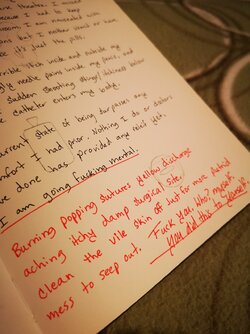 because I had to keep
room. I am nauseated now
but I neither drool or have
be it's just the pills.
itch inside and outside my
needle pains inside my penis, and
sudden shooting stings/itchiness below
catheter enters my body.
current state of being surpasses any
I had prior. Nothing I do or doctors
have done has provided any relief yet.
I am going fucking mental.
Burning popping sutures yellow discharge
aching itchy damp surgical site.
Clean the vile skin off just for more putrid
mess to seep out. Fuck you, who? myself
you did this to yourself.